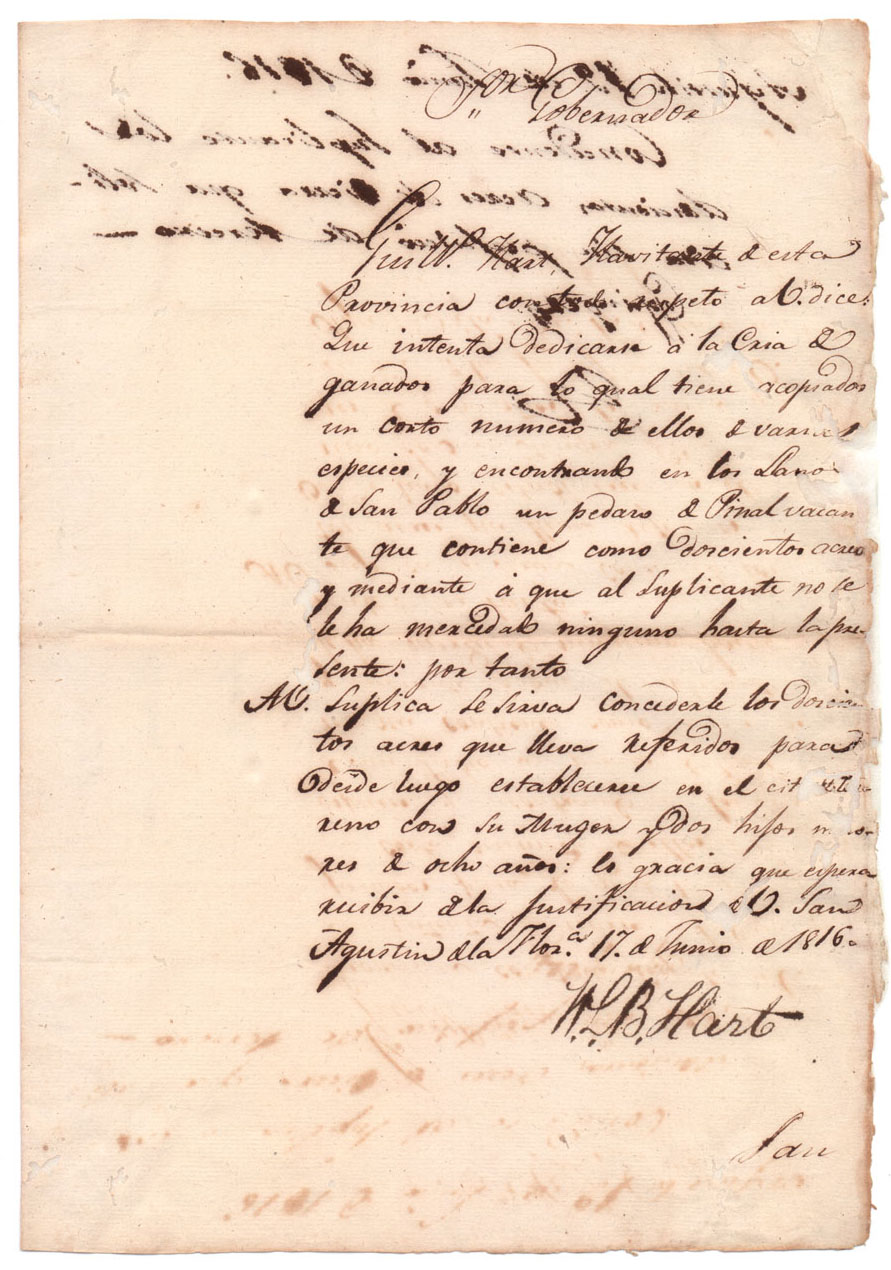 Sor Gobernador
Guillo. Hart, Havitante de esta
Provincia con todo respeto a V. dice:
Que intenta dedicarse à la Cria de
ganados para lo qual tiene acopiados
un corto numero de ellos de varias
especies, y encontrando en los Llanos
de San Pablo un pedazo de Pinal vacan
te que contiene como doscientos acres
y mediante à que al Suplicante no se
le ha mercedado ninguno hasta la pre-
sente: por tanto
A V. Suplica se sirva concederle los doscien
tos acres que lleva referidos para
desde luego establecerse en el citado Te
rreno con su Muger y dos hijos mayo-
res de ocho años: la gracia que espera
recibir de la Justificacion de V. San
Agustin de la Flora. 17. de Junio de 1816.
W. L. B. Hart
San